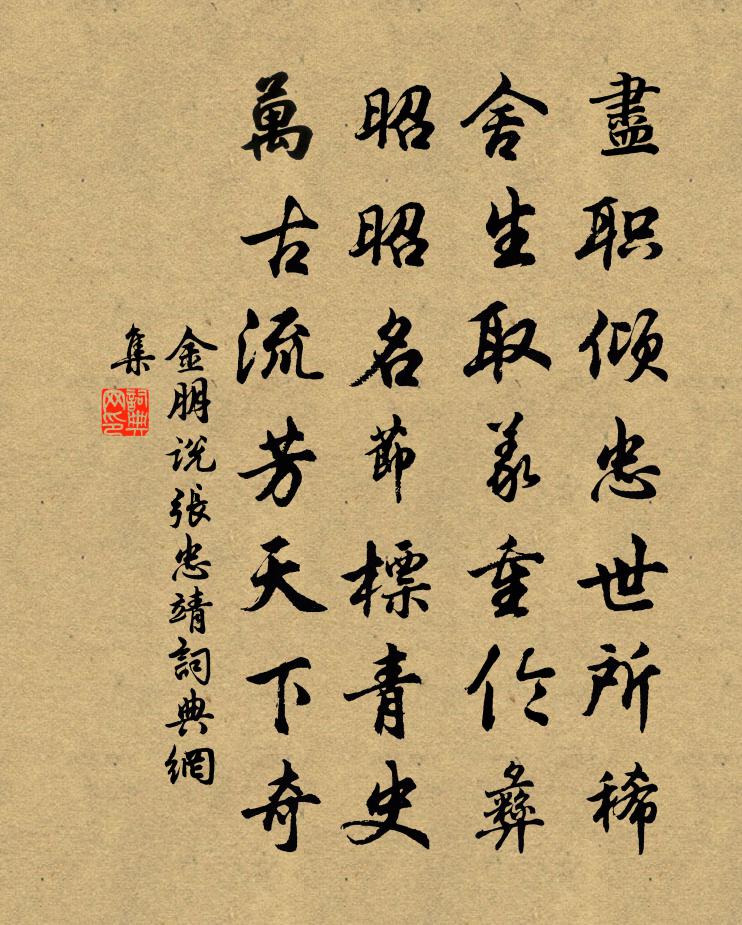 盡职倾忠世所稀
舍生取义重伦彝
昭昭名節標青史
萬古流芳天下奇
金朋说張忠靖詞典網
集
詞典
网印